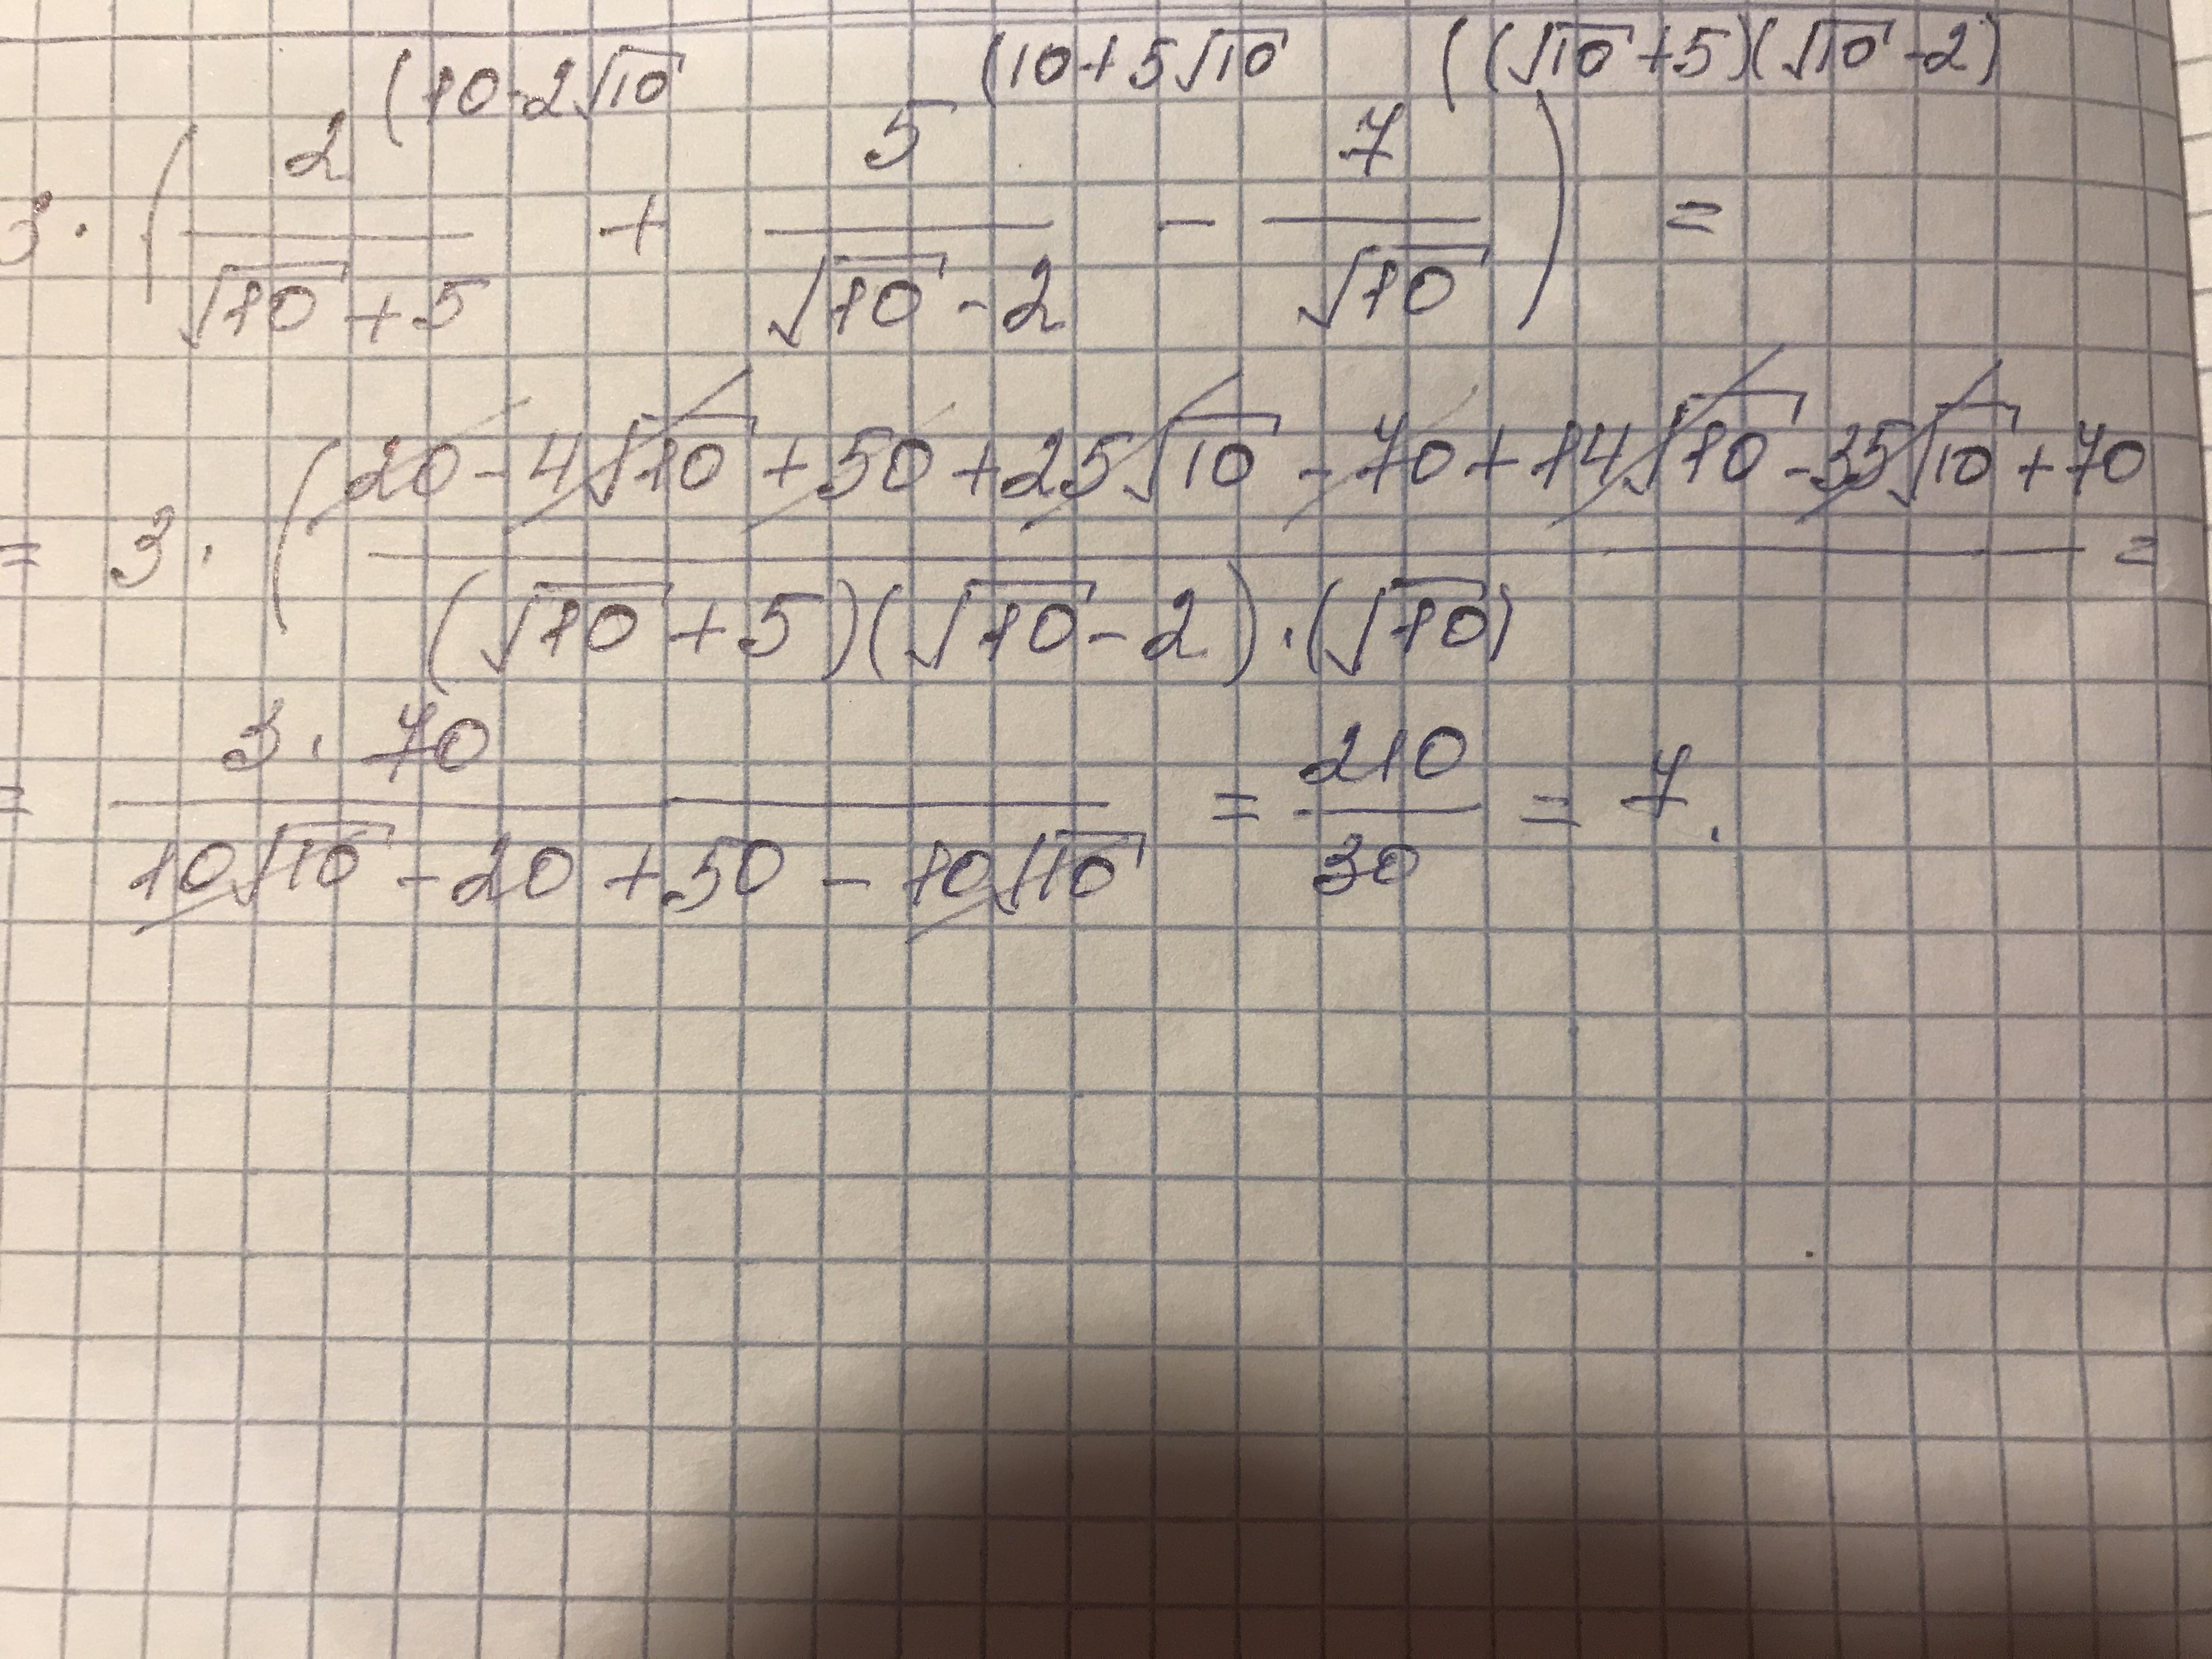 (10-2√10 (10+5√10 ((√10+5)(√10-2)
3·(2/(√10+5) + 5/(√10-2) - 7/√10) =
= 3·(20-4√10+50+25√10-70+14√10-35√10+70 / (√10+5)(√10-2)·(√10) =
= 3·70 / 10√10-20+50-10√10 = 210/30 = 7.